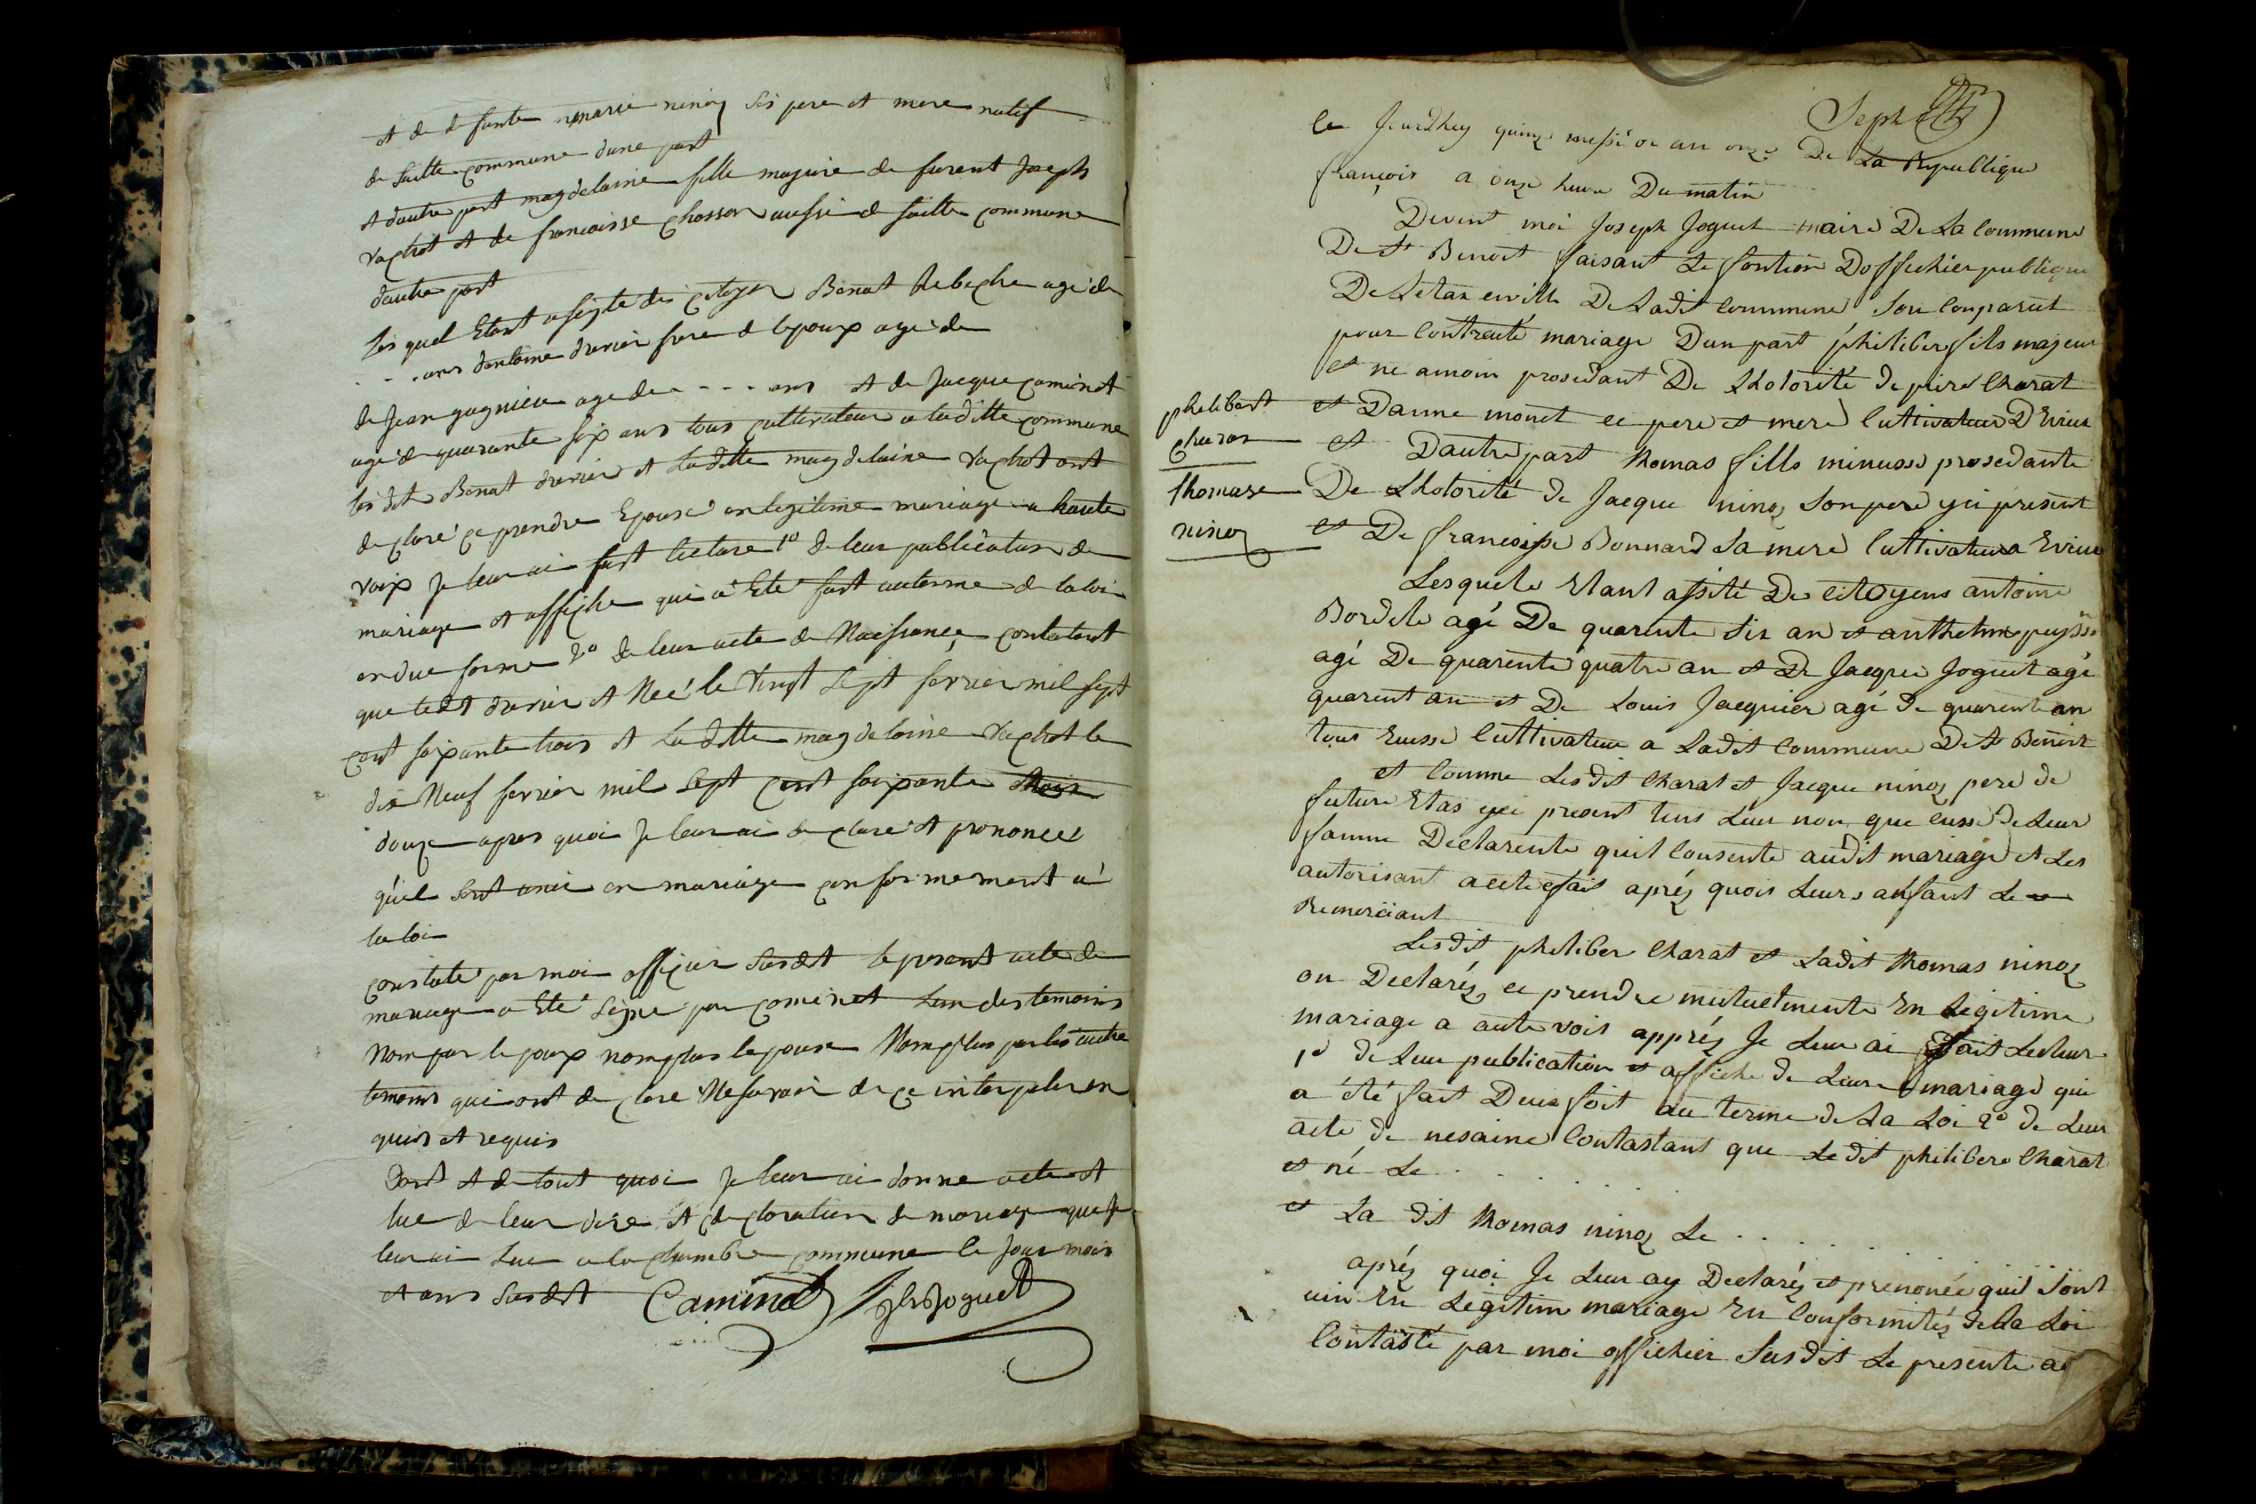 et de defunte marie ninoz ses pere et mere natif
de ladtte commune dune part
et dautre part magdelaine fille majure de furent Joseph
vachot et de francoisse chosson aussi de ladtte commune
dautre part
les quel Etant asisté des citoyen Benoit age de
ans dantoine frere de lepoux age de
de Jean gagnieu age de - - - ans et de Jacque caminet
agé de quarante six ans tous cultivateur a laditte commune
les dit Benoit et laditte magdelaine vachot ont
declaré ce prendre Epouse en legitime mariage a haute
voix je leur ai fait lecture 1º de leur publication de
mariage et affiche qui a Eté fait au terme de la loi
en due forme 2º de leur acte de Naissance contatant
que ledit et Neé le vingt sept fevrier mil sept
cent soixante trois et laditte magdelaine vachot le
dix Neuf fevrier mil sept cent soixante
douze apres quoi je leur ai declaré et prononcé
qu'il sont unie en mariage conformement a
la loi
constaté par moi officier susdit le present acte de
mariage a Eté signe par caminet l'un des temoins
Nom par lepoux nomplus lepouse Nom plus par les autre
temoins qui ont declare Ne savoir de ce interpeler en
quis et requis
Dont et de tout quoi je leur ai donne acte et
lue de leur dire et declaration de mariage que je
leur ai lue a la chambre commune le jour mois
et ans susdit Caminet Jph Joguet
Sept
le Jeurdhuy quinze messidor an onze De La Republique
françois a onze heure Du matin
Devent moi Joseph Joguet maire De La Commune
De St Benoit faisant Le fontion Doffichier publique
De Letas eiville De Ladit Commune Son Comparut
pour Contracté mariage Dun part philiber fils majeur
et ne amoin prosedant De Lhotorité de pierre Charat
philibert
charat
et Danne monet ce pere et mere Cultivateur D Evieu
et Dautre part thomas fille mineuse prosedante
thomase
ninoz
De Lhotorité de Jacque ninoz Son pere yci present
et De francoisse Bonnard Sa mere Cultivateur a Evieu
Lesquele Etant assité Des Citoyens antoine
Bordele agé De quarente Six an et anthelme
agé De quarente quatre an et De Jacque Joguet agé
quarent an et De Louis Jacquier agé de quarente an
tous Eusse Cultivateur a Ladit Commune De St Benoit
et Comme Les dit Charat et Jacque ninoz pere de
future Etas yci present tens Leur non que eusse de Leur
famme Declarente quil Consente audit mariage et Les
autorisant a cete efait apréz quois Leurs anfant Le
Remerciant
Lesdit philiber Charat et Ladit thomas ninoz
on Declaréz ce prendre mutuelmente En Legitime
mariage a aute vois appréz Je Leur ai fait Lecteur
1º de Leur publication et affiche de Leure mariage qui
a été fait au terme de La Loi 2º de Leur
acte de nesaine Contastant que Le dit philibere Charat
et né Le . . . . . . .
et La dit thomas ninoz Le . . . . . . .
apréz quoi Je Leur ay Declaréz et prenoncé quil Sont
uin En Legitim mariage En Conformitéz de La Loi
Contasté par moi offichier Susdit Le presente ac